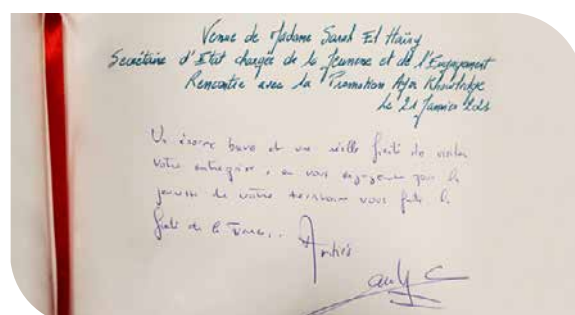 Venue de Madame Sarah El Haïry
Secrétaire d'Etat chargée de la Jeunesse et de l'Engagement
Rencontre avec la Promotion Knowledge
Le 21 Janvier
Un énorme bravo et une réelle fierté de visiter
votre entreprise, en vous engageant pour la
jeunesse de votre territoire vous faites la
fierté de la France..